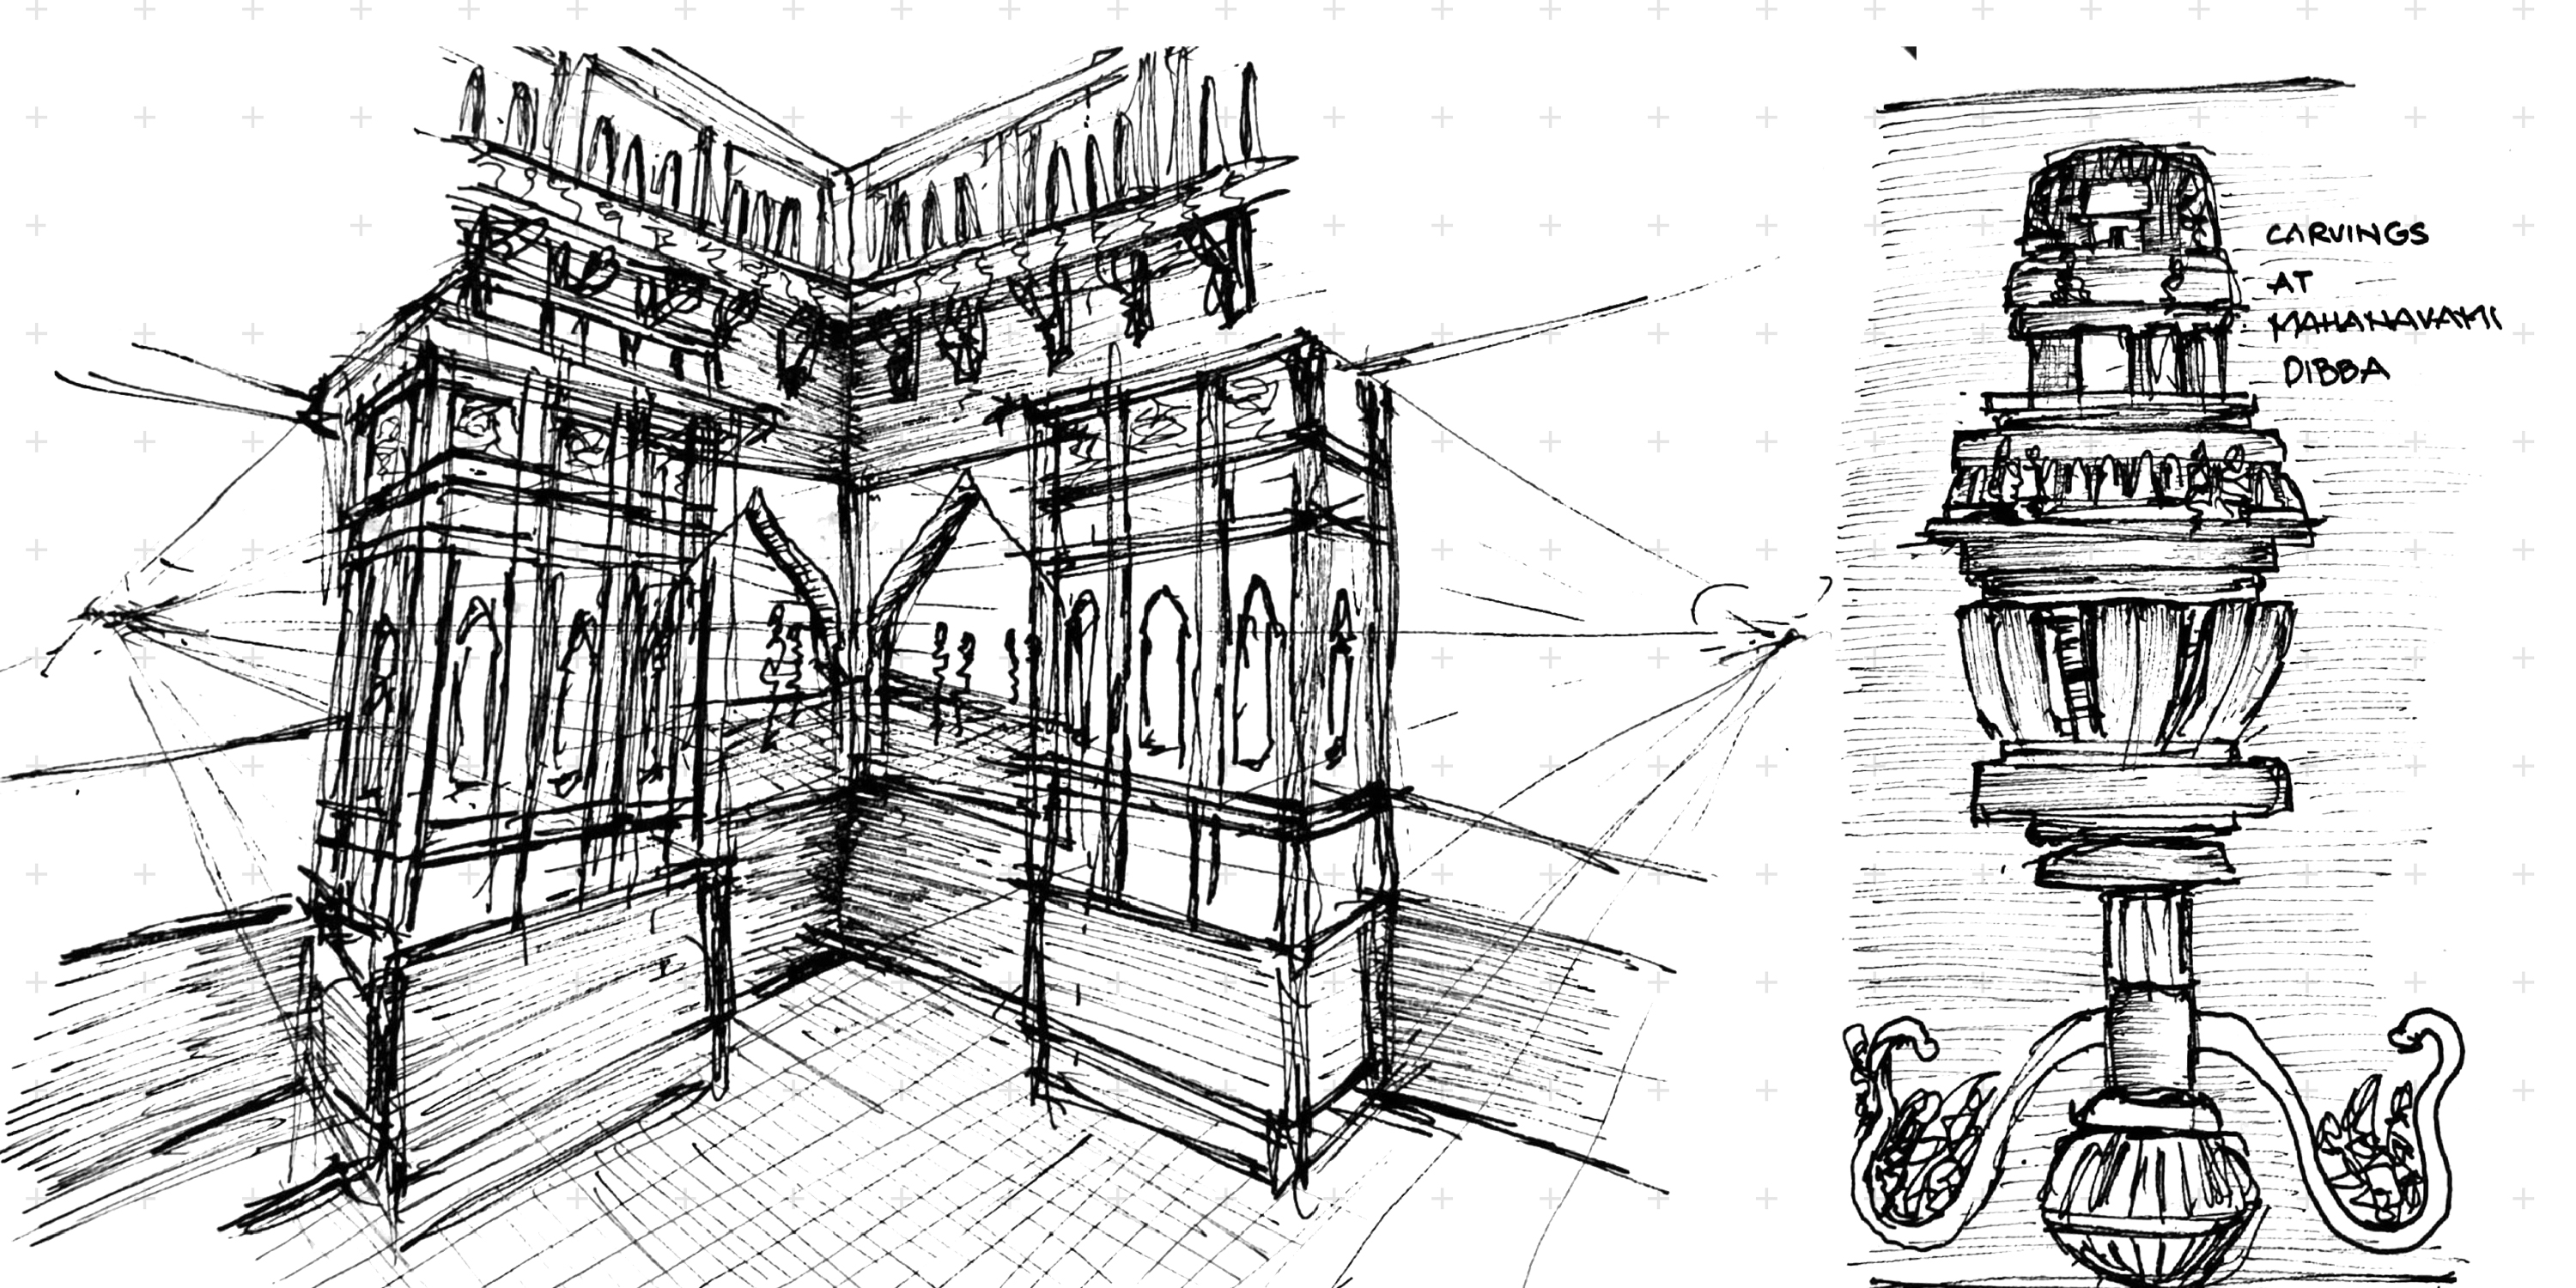 CARVINGS
AT
MAHANAVAMI
DIBBA